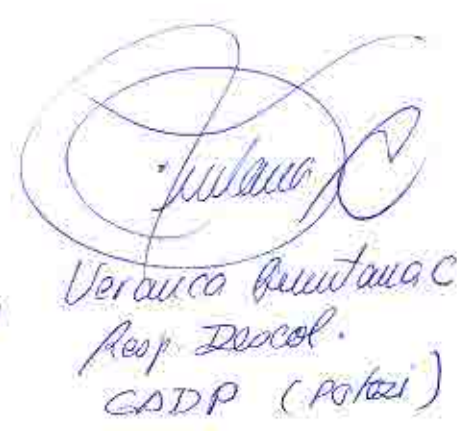 Quintana C
Veronica Quintana C
Resp. Descol.
GADP (Potosi)